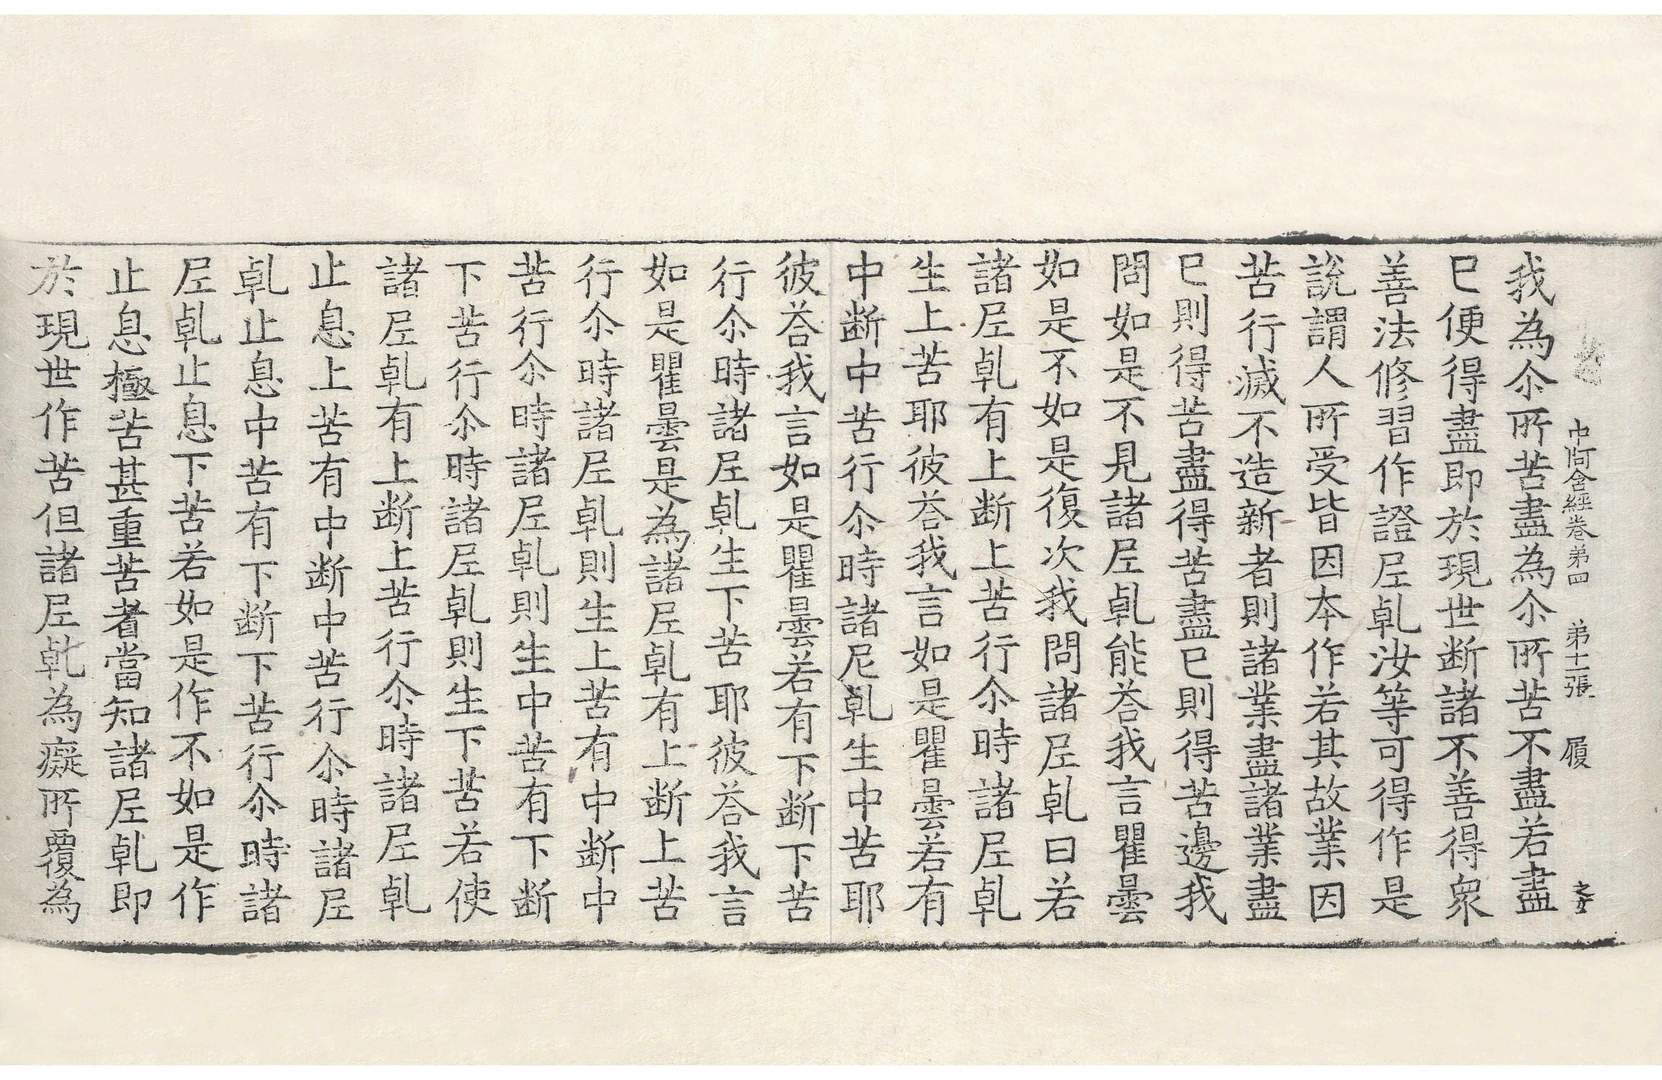 中阿含經卷第四 第十二張 履
我為尒所苦盡為尒所苦不盡若盡
已便得盡即於現世断諸不善得衆
善法修習作證尼乹汝等可得作是
說謂人所受皆因本作若其故業因
苦行滅不造新者則諸業盡諸業盡
已則得苦盡得苦盡已則得苦邊我
問如是不見諸尼乹能荅我言瞿曇
如是不如是復次我問諸尼乹曰若
諸尼乹有上断上苦行尒時諸尼乹
生上苦耶彼荅我言如是瞿曇若有
中断中苦行尒時諸尼乹生中苦耶
彼荅我言如是瞿曇若有下断下苦
行尒時諸尼乹生下苦耶彼荅我言
如是瞿曇是為諸尼乹有上断上苦
行尒時諸尼乹則生上苦有中断中
苦行尒時諸尼乹則生中苦有下断
下苦行尒時諸尼乹則生下苦若使
諸尼乹有上断上苦行尒時諸尼乹
止息上苦有中断中苦行尒時諸尼
乹止息中苦有下断下苦行尒時諸
尼乹止息下苦若如是作不如是作
止息極苦甚重苦者當知諸尼乹即
於現世作苦但諸尼乹為癡所覆為